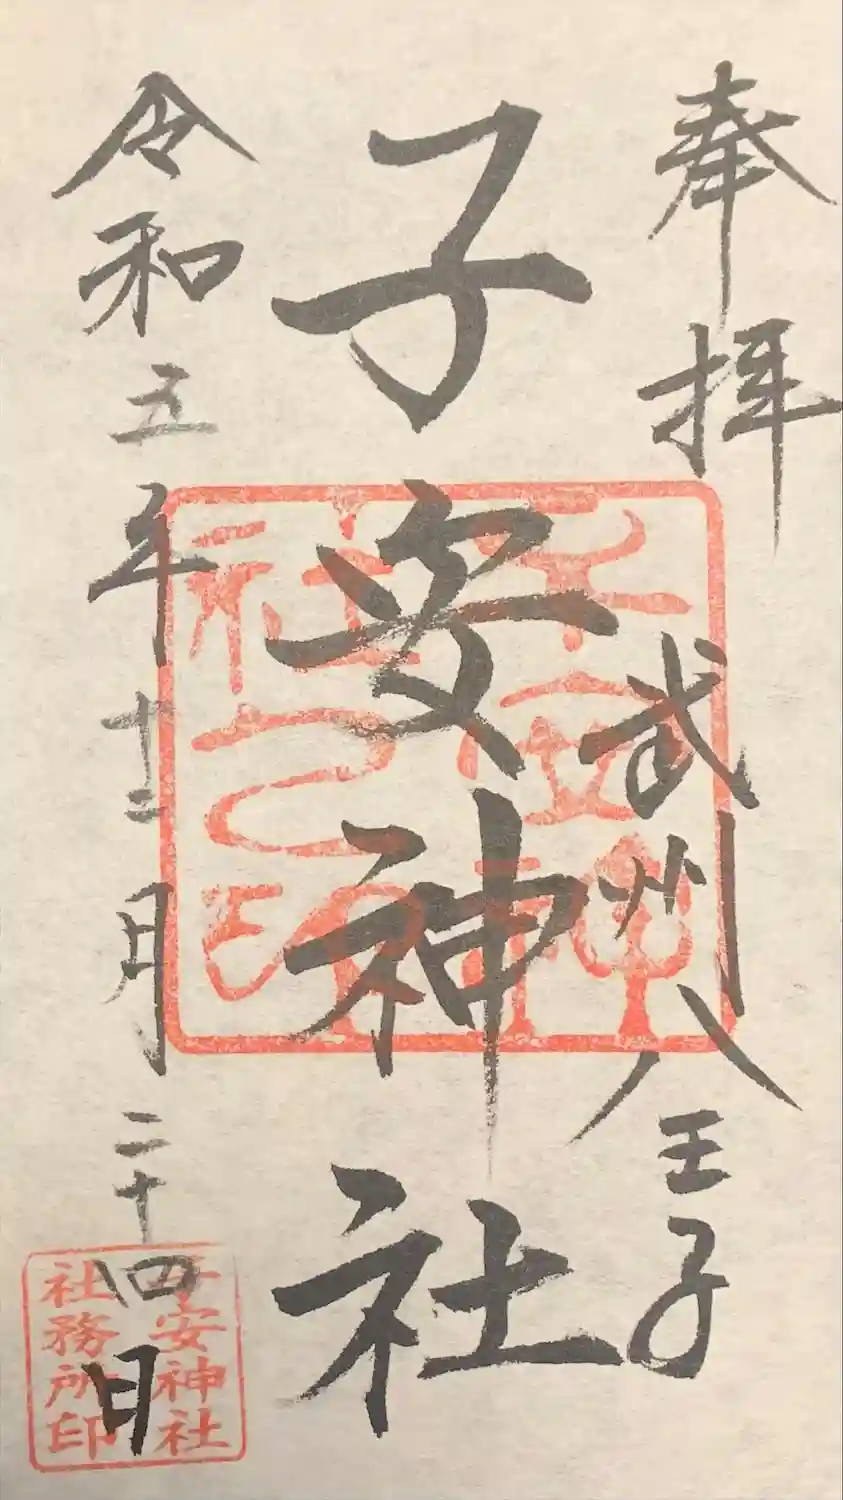 奉拝
武州八王子
子安神社
令和五年十二月二十四日
子安神社之印
子安神社
社務所印